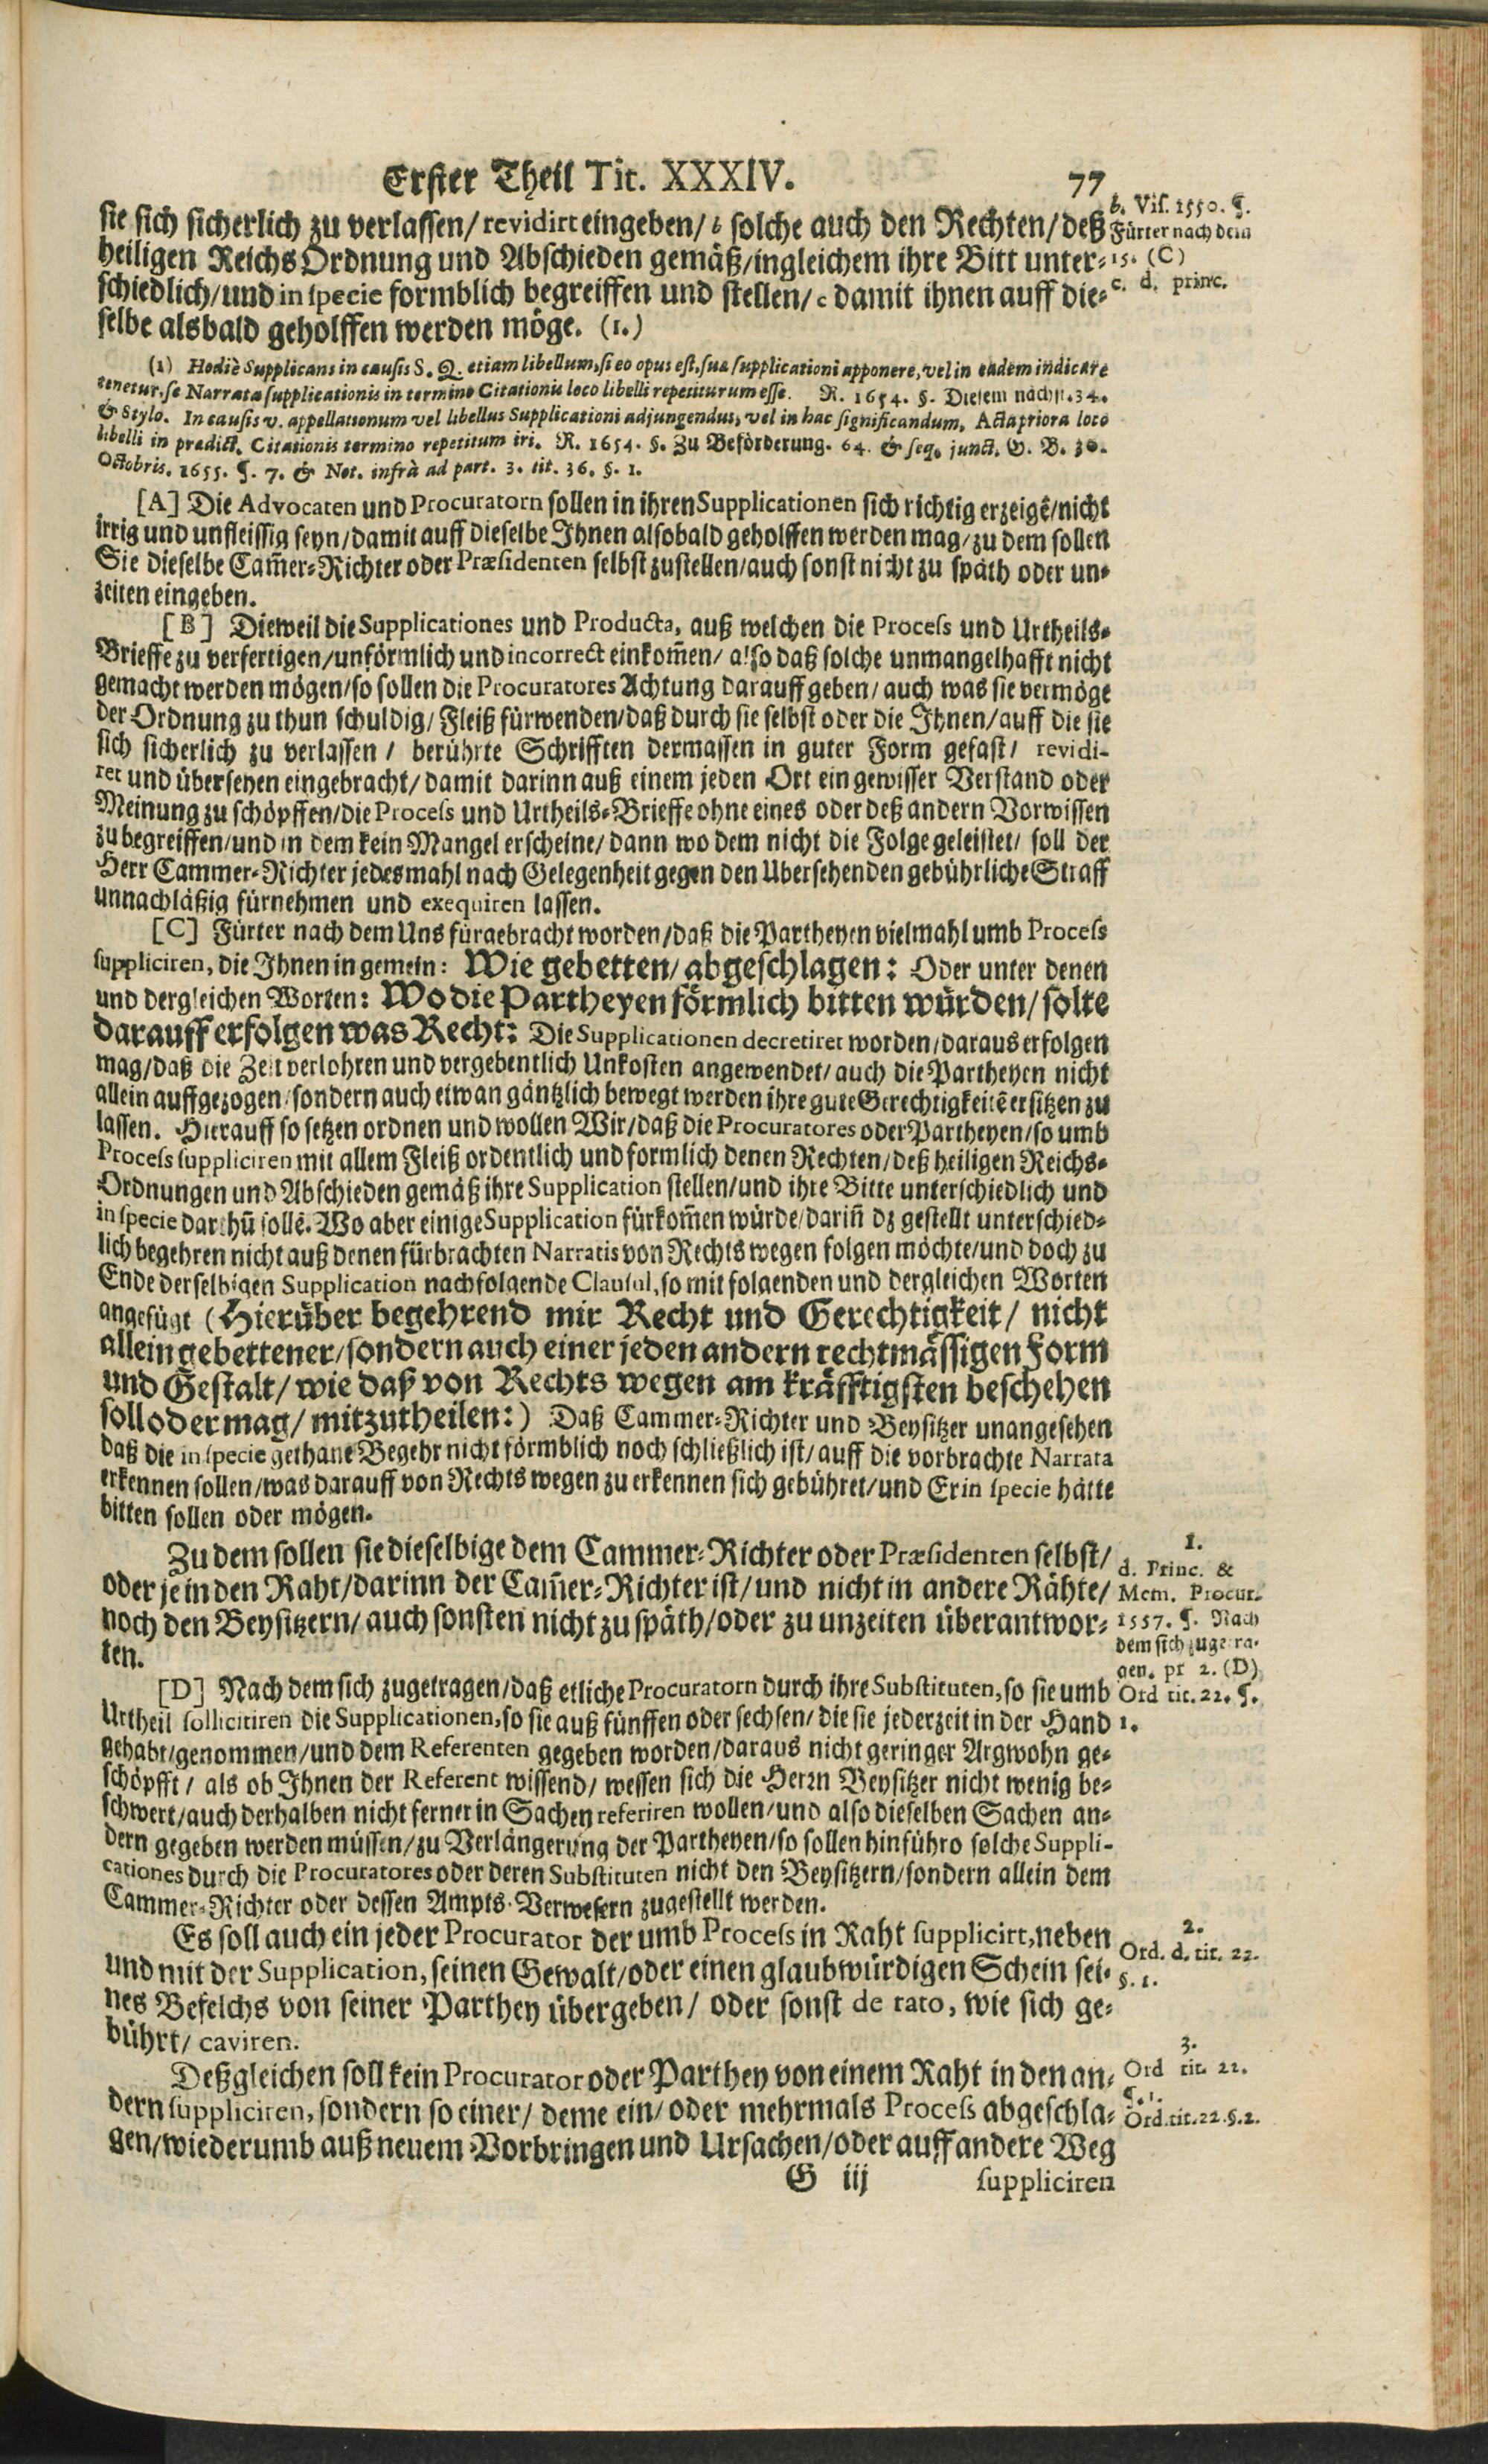 Erster Theil Tit. XXXIV. 77
sie sich sicherlich zu verlassen/ revidirt eingeben/ b solche auch den Rechten/ deß
heiligen Reichs Ordnung und Abschieden gemäß/ ingleichem ihre Bitt unter-
schiedlich/ und in specie formblich begreiffen und stellen/ c damit ihnen auff die-
selbe alsbald geholffen werden möge. (1.)
b. Vis. 1550. ¶.
Fürter nach dem
15. (C)
c. d. princ.
(1) Hodiè Supplicans in causis S. Q. etiam libellum, si eo opus est, suæ supplicationi apponere, vel in eadem indicare
tenetur, se Narrata supplicationis in termino Citationis loco libelli repetiturum esse. R. 1654. §. Diesem nächst. 34.
& Stylo. In causis v. appellationum vel libellus Supplicationi adjungendus, vel in hac significandum, Acta priora loco
libelli in prædict. Citationis termino repetitum iri. R. 1654. §. Zu Beförderung. 64. & seq. junct. G. B. 30.
Octobris. 1655. ¶. 7. & Not. infrà ad part. 3. tit. 36. §. 1.
[A] Die Advocaten und Procuratorn sollen in ihren Supplicationen sich richtig erzeigē/ nicht
irrig und unfleissig seyn/ damit auff dieselbe Ihnen alsobald geholffen werden mag/ zu dem sollen
Sie dieselbe Cam̄er-Richter oder Præsidenten selbst zustellen/ auch sonst nicht zu späth oder un-
zeiten eingeben.
[B] Dieweil die Supplicationes und Producta, auß welchen die Process und Urtheils-
Brieffe zu verfertigen/ unförmlich und incorrect einkom̄en/ also daß solche unmangelhafft nicht
gemacht werden mögen/ so sollen die Procuratores Achtung darauff geben/ auch was sie vermöge
der Ordnung zu thun schuldig/ Fleiß fürwenden/ daß durch sie selbst oder die Ihnen/ auff die sie
sich sicherlich zu verlassen/ berührte Schrifften dermassen in guter Form gefast/ revidi-
ret und übersehen eingebracht/ damit darinn auß einem jeden Ort ein gewisser Verstand oder
Meinung zu schöpffen/ die Process und Urtheils-Brieffe ohne eines oder deß andern Vorwissen
zu begreiffen/ und in dem kein Mangel erscheine/ dann wo dem nicht die Folge geleistet/ soll der
Herr Cammer-Richter jedesmahl nach Gelegenheit gegen den Ubersehenden gebührliche Straff
unnachläßig fürnehmen und exequiren lassen.
[C] Fürter nach dem Uns fürgebracht worden/ daß die Partheyen vielmahl umb Process
suppliciren, die Ihnen in gemein: Wie gebetten/ abgeschlagen: Oder unter denen
und dergleichen Worten: Wo die Partheyen förmlich bitten würden/ solte
darauff erfolgen was Recht: Die Supplicationen decretiret worden/ daraus erfolgen
mag/ daß die Zeit verlohren und vergebentlich Unkosten angewendet/ auch die Partheyen nicht
allein auffgezogen/ sondern auch etwan gäntzlich bewegt werden ihre gute Gerechtigkeitē ersitzen zu
lassen. Hierauff so setzen ordnen und wollen Wir/ daß die Procuratores oder Partheyen/ so umb
Process suppliciren mit allem Fleiß ordentlich und formlich denen Rechten/ deß heiligen Reichs-
Ordnungen und Abschieden gemäß ihre Supplication stellen/ und ihre Bitte unterschiedlich und
in specie darthū sollē. Wo aber einige Supplication fürkom̄en würde/ darin̄ dz gestellt unterschied-
lich begehren nicht auß denen fürbrachten Narratis von Rechts wegen folgen möchte/ und doch zu
Ende derselbigen Supplication nachfolgende Clausul, so mit folgenden und dergleichen Worten
angefügt (Hierüber begehrend mir Recht und Gerechtigkeit/ nicht
allein gebettener/ sondern auch einer jeden andern rechtmässigen Form
und Gestalt/ wie daß von Rechts wegen am kräfftigsten beschehen
soll oder mag/ mitzutheilen:) Daß Cammer-Richter und Beysitzer unangesehen
daß die in specie gethane Begehr nicht förmblich noch schließlich ist/ auff die vorbrachte Narrata
erkennen sollen/ was darauff von Rechts wegen zu erkennen sich gebühret/ und Er in specie hätte
bitten sollen oder mögen.
Zu dem sollen sie dieselbige dem Cammer-Richter oder Præsidenten selbst/
oder je in den Raht/ darinn der Cam̄er-Richter ist/ und nicht in andere Rähte/
noch den Beysitzern/ auch sonsten nicht zu späth/ oder zu unzeiten überantwor-
ten.
1.
d. Princ. &
Mem. Procur.
1557. ¶. Nach
dem sich zugetra-
gen. pr 2. (D)
Ord tit. 22. ¶.
1.
[D] Nach dem sich zugetragen/ daß etliche Procuratorn durch ihre Substituten, so sie umb
Urtheil sollicitiren die Supplicationen, so sie auß fünffen oder sechsen/ die sie jederzeit in der Hand
gehabt/ genommen/ und dem Referenten gegeben worden/ daraus nicht geringer Argwohn ge-
schöpfft/ als ob Ihnen der Referent wissend/ wessen sich die Herrn Beysitzer nicht wenig be-
schwert/ auch derhalben nicht ferner in Sachen referiren wollen/ und also dieselben Sachen an-
dern gegeben werden müssen/ zu Verlängerung der Partheyen/ so sollen hinführo solche Suppli-
cationes durch die Procuratores oder deren Substituten nicht den Beysitzern/ sondern allein dem
Cammer-Richter oder dessen Ampts-Verwesern zugestellt werden.
Es soll auch ein jeder Procurator der umb Process in Raht supplicirt, neben
und mit der Supplication, seinen Gewalt/ oder einen glaubwürdigen Schein sei-
nes Befelchs von seiner Parthey übergeben/ oder sonst de rato, wie sich ge-
bührt/ caviren.
2.
Ord. d. tit. 22.
§. 1.
Deßgleichen soll kein Procurator oder Parthey von einem Raht in den an-
dern suppliciren, sondern so einer/ deme ein/ oder mehrmals Process abgeschla-
gen/ wiederumb auß neuem Vorbringen und Ursachen/ oder auff andere Weg
3.
Ord tit. 22.
¶. 1.
Ord. tit. 22. §. 2.
G iij suppliciren